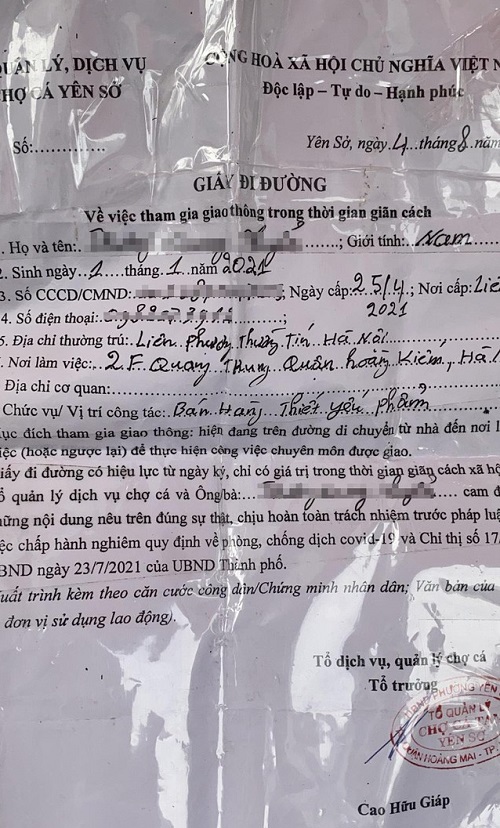 QUẢN LÝ, DỊCH VỤ
CHỢ CÁ YÊN SỞ
CỘNG HOÀ XÃ HỘI CHỦ NGHĨA VIỆT N
Độc lập – Tự do – Hạnh phúc
Số:.............
Yên Sở, ngày 4 tháng 8 năm
GIẤY ĐI ĐƯỜNG
Về việc tham gia giao thông trong thời gian giãn cách
1. Họ và tên: ; Giới tính: Nam
2. Sinh ngày 1 tháng 1 năm 2021
3. Số CCCD/CMND: ; Ngày cấp: 25/4 2021; Nơi cấp:
4. Số điện thoại:
5. Địa chỉ thường trú: Liên Phương Thường Tín Hà Nội
Nơi làm việc: 2.F. Quang Trung Quận hoàng Kiếm, Hà
Địa chỉ cơ quan:
Chức vụ/ Vị trí công tác: Bán Hàng Thiết yếu phẩm
ục đích tham gia giao thông: hiện đang trên đường di chuyển từ nhà đến nơi l
iệc (hoặc ngược lại) để thực hiện công việc chuyên môn được giao.
iấy đi đường có hiệu lực từ ngày ký, chỉ có giá trị trong thời gian giãn cách xã hộ
ổ quản lý dịch vụ chợ cá và Ông/bà: cam đ
hững nội dung nêu trên đúng sự thật, chịu hoàn toàn trách nhiệm trước pháp luật
ệc chấp hành nghiêm quy định về phòng, chống dịch covid-19 và Chỉ thị số 17/
BND ngày 23/7/2021 của UBND Thành phố.
uất trình kèm theo căn cước công dân/Chứng minh nhân dân; Văn bản của
đơn vị sử dụng lao động).
Tổ dịch vụ, quản lý chợ cá
Tổ trưởng
TỔ QUẢN LÝ
CHỢ CÁ
YÊN SỞ
Cao Hữu Giáp